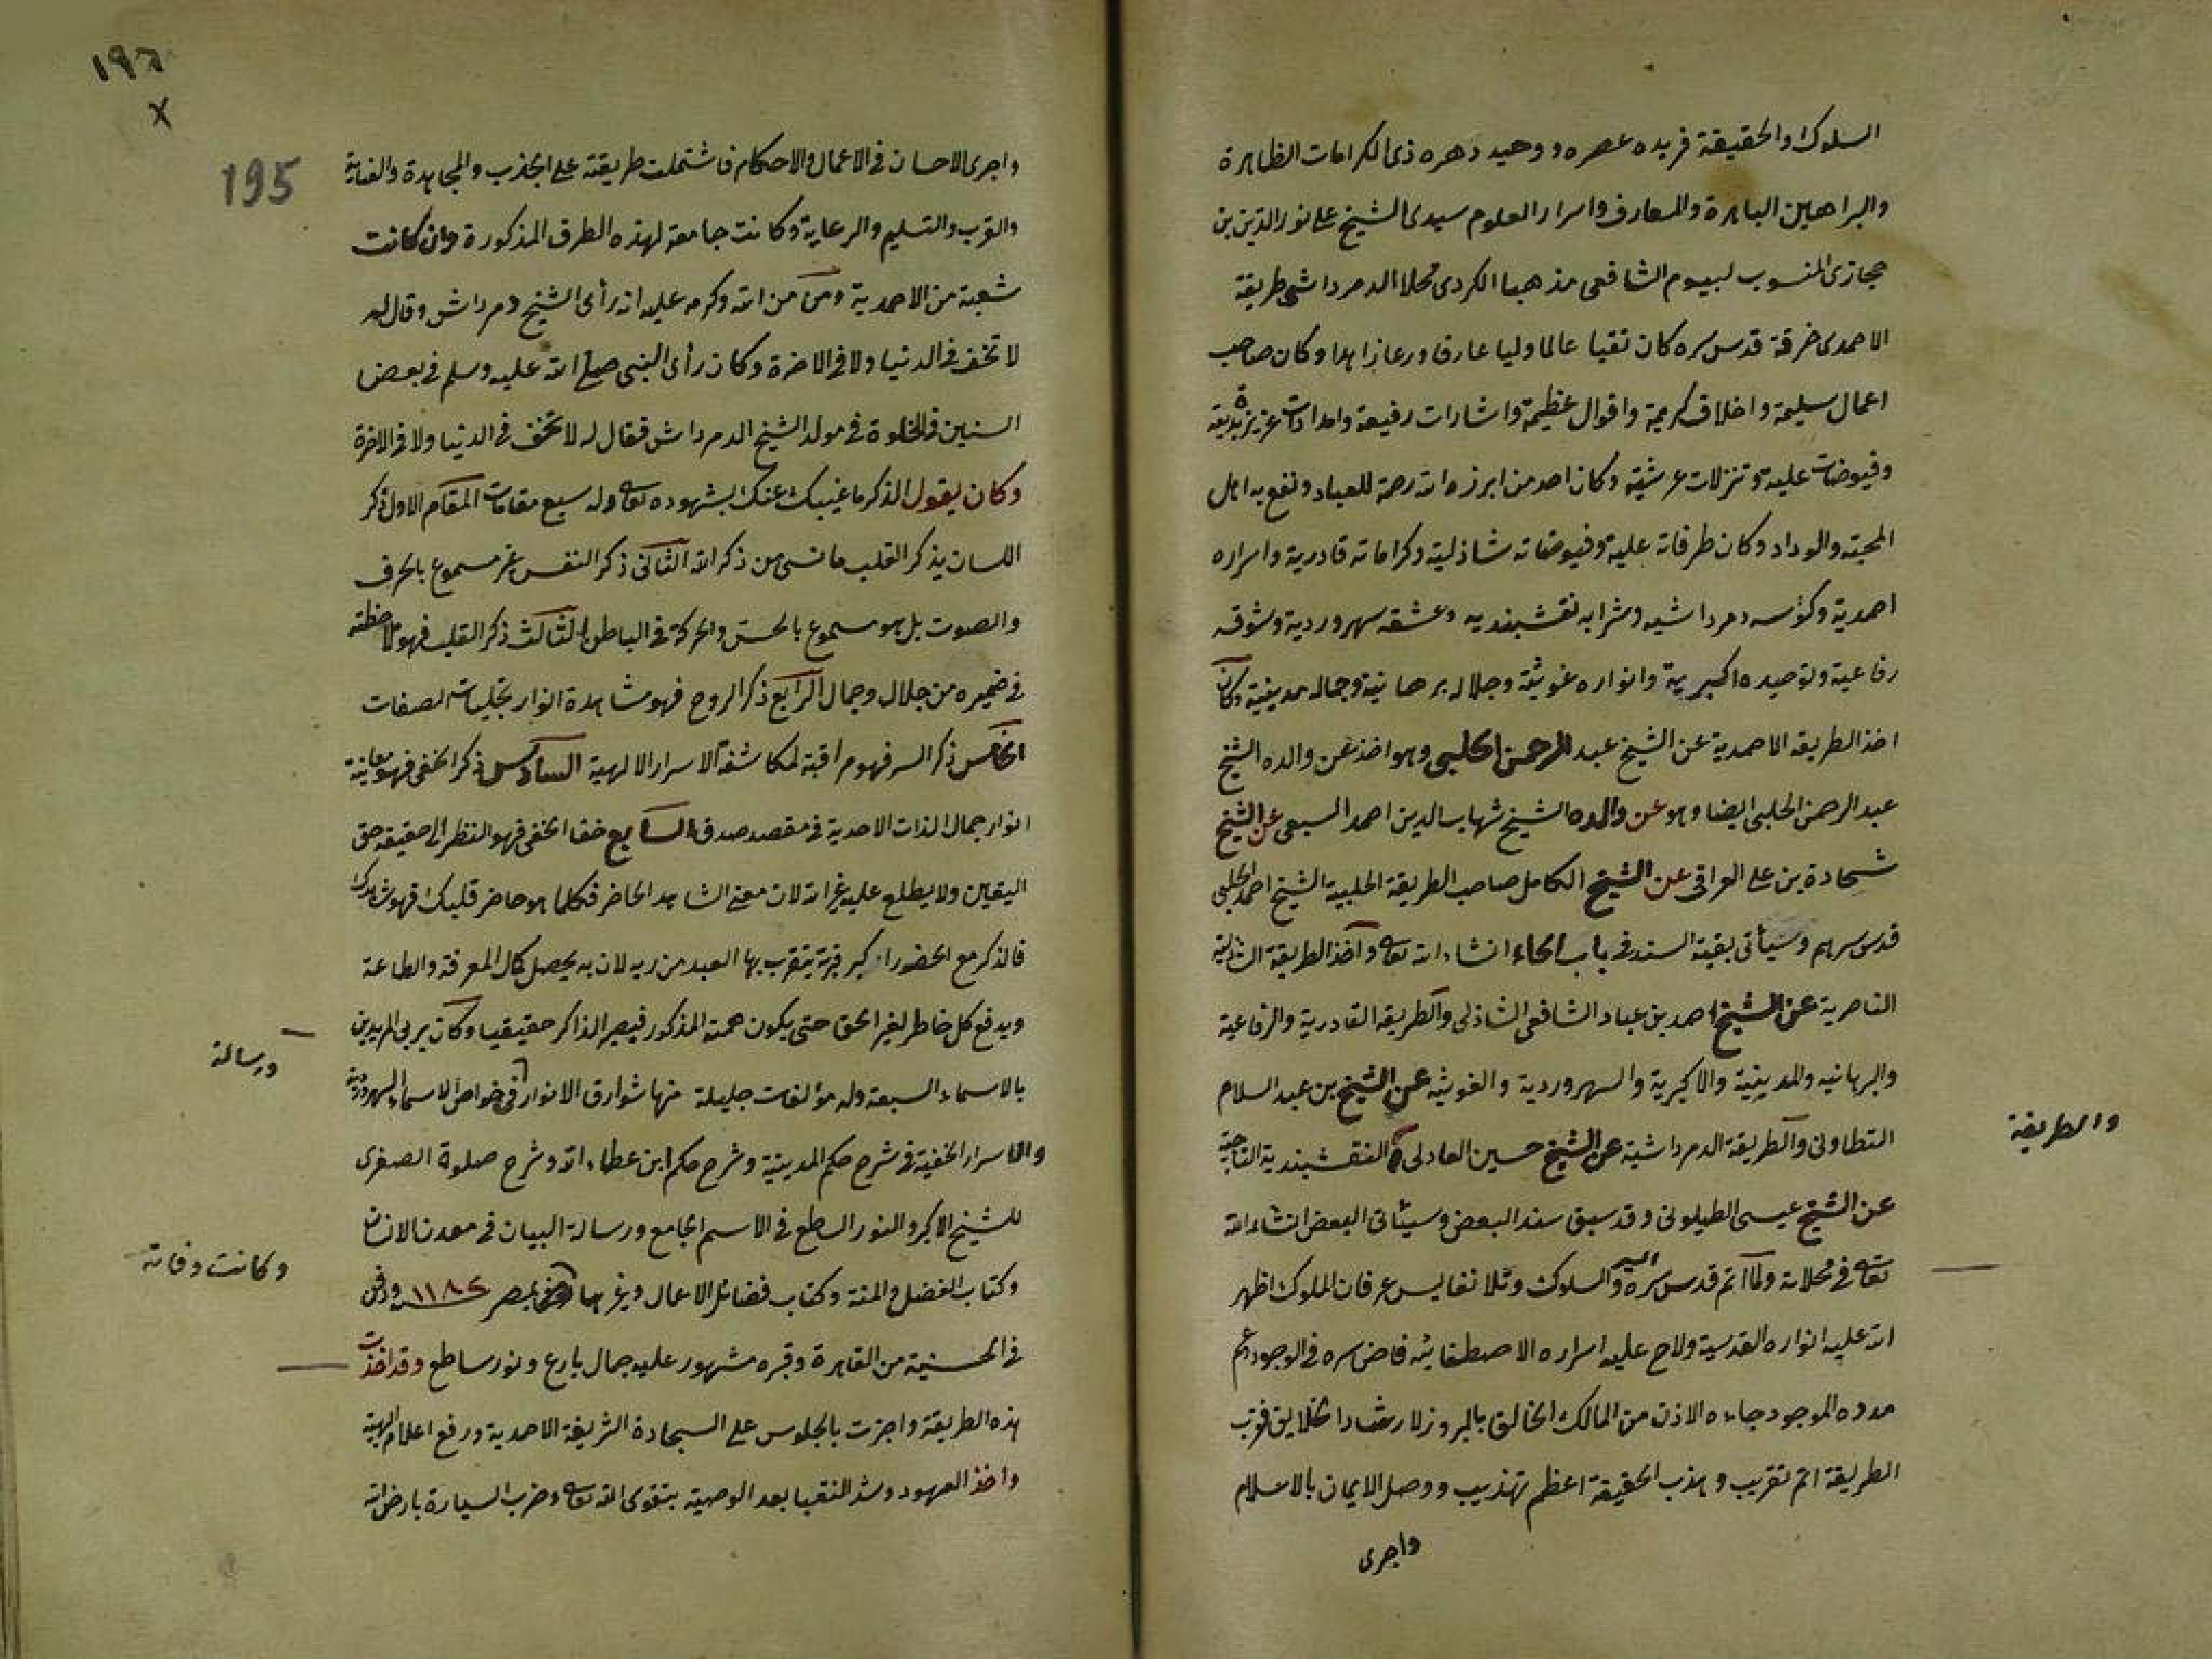 السلوك والحقيقة فريده عصره ووحيد دهره ذى الكرامات الظاهرة
والبراهين الباهرة والمعارف واسرار العلوم سيدى الشيخ على نور الدين بن
حجازى المنسوب لبيوم الشافعى مذهبا الكردى محلا الدمرداشى طريقة
الاحمدى خرقة قدس سره كان تقيا عالما وليا عارفا ورعا زاهدا وكان صاحب
اعمال سليمة واخلاق كريمة واقوال عظيمة واشارات رفيعة وامدادات عزيزة بديعة
وفيوضات علية وتنزلات عرشية وكان احد من ابرزه الله رحمة للعباد ونفع به اهل
المحبته والوداد وكان طرفاته علية وفيوضاته شاذلية وكراماته قادرية واسراره
احمدية وكؤسه دمرداشيه وشرابه نقشبنديه وعشقه سهروردية وشوقه
رفاعية وتوحيده اكبرية وانواره غوثية وجلاله برهانية وجماله مدينية وكان
اخذ الطريقه الاحمدية عن الشيخ عبد الرحمن الحلبى وهو اخذ عن والده الشيخ
عبد الرحمن الحلبى ايضا وهو عن والده الشيخ شهاب الدين احمد السبعى عن الشيخ
شحادة بن على العراقى عن الشيخ الكامل صاحب الطريقة الحلبية الشيخ احمد الحلبى
قدس سرهم وسيأتى بقية السند فى باب الحاء انشاء الله تعالى واخذ الطريقة الشاذلية
الناصرية عن الشيخ احمد بن عباد الشافعى الشاذلى والطريقه القادرية والرفاعية
والبرهانيه والمدينية والاكبرية والسهروردية والغوثيه عن الشيخ بن عبد السلام
التطاونى والطريقة الدمرداشية عن الشيخ حسين العادلى النقشبندية التاجية
والطريقة
عن الشيخ عيسى الطيلونى وقد سبق سند البعض وسيأتى البعض انشاء الله
تعالى فى محلاته ولما اتم قدس سره السير والسلوك وتلا نفايس عرفان الملوك اظهر
الله عليه انواره القدسية ولاح عليه اسراره الاصطفائيه فاض سره فى الوجود وعم
مدده الموجود جاءه الاذن من المالك الخالق بالبروز لارشاد الخلايق فقرب
الطريقة اتم تقريب وهذب الحقيقة اعظم تهذيب ووصل الايمان بالاسلام
واجرى
١٩٦
X
195
واجرى الاحسان فى الاعمال والاحكام فاشتملت طريقته على الجذب والمجاهدة والعناية
والقرب والتسليم والرعاية وكانت جامعة لهذه الطرق المذكورة وان كانت
شعبة من الاحمدية ومن من الله وكرمه عليه انه رأى الشيخ دمرداش وقال له
لا تخف فى الدنيا ولا فى الاخرة وكان رأى النبى صلى الله عليه وسلم فى بعض
السنين فى الخلوة فى مولد الشيخ الدمرداش فقال له لا تخف فى الدنيا ولا فى الاخرة
وكان يقول الذكر ما غيبك عنك بشهوده تعالى وله سبع مقامات المقام الاول ذكر
اللسان يذكر القلب ما نسى من ذكر الله الثانى ذكر النفس غير مسموع بالحرف
والصوت بل هو مسموع بالحس والحركة فى الباطن الثالث ذكر القلب فهو ملاحظته
فى ضميره من جلال وجمال الرابع ذكر الروح فهو مشاهدة انوار تجليات الصفات
الخامس ذكر السر فهو مراقبة لمكاشفة الاسرار الالهية السادس ذكر الخفى فهو معاينة
انوار جمال الذات الاحدية فى مقصد صدق السابع خفا الخفى فهو النظر الى حقيقة حق
اليقين ولا يطلع عليه غير الله لان معنى الشاهد الحاضر فكلما هو حاضر قلبك فهو شاهدك
فالذكر مع الحضور اكبر قربة يتقرب بها العبد من ربه لان به يحصل كمال المعرفة والطاعة
ويدفع كل خاطر لغير الحق حتى يكون همته المذكور فيصير الذاكر حقيقيا وكان يربى المريدين
بالاسماء السبعة وله مؤلفات جليلة منها شوارق الانوار فى خواص الاسماء السهروردية
ورسالة
والاسرار الخفية فى شرح حكم المدينية وشرح حكم ابن عطاء الله وشرح صلوة الصغرى
للشيخ الاكبر والنور الساطع فى الاسم الجامع ورسالة البيان فى معدن الانسان
وكتاب الفضل والمنة وكتاب فضائل الاعمال وغيرها بمصر ١١٨٢ ودفن
وكانت وفاته
فى الحسنية من القاهرة وقبره مشهور عليه جمال بارع ونور ساطع وقد اخذت
هذه الطريقة واجزت بالجلوس على السجادة الشريفة الاحمدية ورفع اعلام البهية
واخذ العهود وشد النقبا بعد الوصية بتقوى الله تعالى وضرب السيارة بارض الله